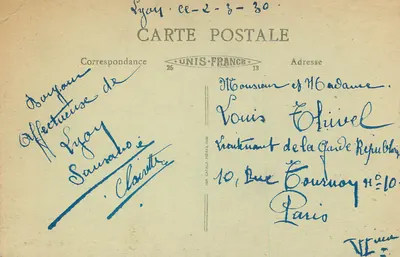 Lyon, le 2-3-30
CARTE POSTALE
Correspondance
UNIS-FRANCE
Adresse
Bonjour
affectueuse de
Lyon
Monsieur et Madame
Louis Thivel
Lieutenant de la Garde Républ
10, Rue Tournon No 10
Paris
VIeme